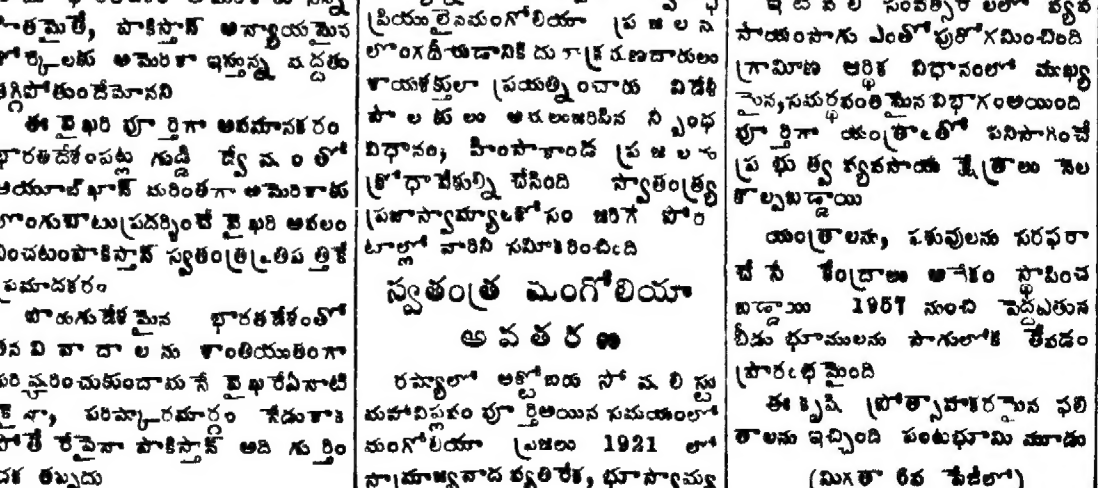 తమైతే, పాకిస్తాన్ అన్యాయమైన
కోర్కెలకు అమెరికా ఇస్తున్న మద్దతు
తగ్గిపోతుందేమోనని
ఈ వైఖరి పూర్తిగా అవమానకరం
భారతదేశంపట్ల గుడ్డి ద్వేషంతో
అయూబ్ ఖాన్ మరింతగా అమెరికాకు
లొంగుబాటు ప్రదర్శించే వైఖరి అవలం
బించటం పాకిస్తాన్ స్వతంత్ర ప్రతిపత్తికే
ప్రమాదకరం
పొరుగుదేశమైన భారతదేశంతో
తన వివాదాలను శాంతియుతంగా
పరిష్కరించుకుందామనే వైఖరి ఏనాటి
కైనా, పరిష్కారమార్గం నేడు కాక
పోతే రేపైనా పాకిస్తాన్ అది గుర్తిం
చక తప్పదు
ప్రియులైన మంగోలియా ప్రజలను
లొంగదీయడానికి దురాక్రమణదారులు
శాయశక్తులా ప్రయత్నించారు విదేశీ
పాలకులు అమలుజరిపిన నిర్బంధ
విధానం, హింసాకాండ ప్రజలను
క్రోధావేశుల్ని చేసింది స్వాతంత్ర్య
ప్రజాస్వామ్యాలకోసం జరిగే పోరా
టాల్లో వారిని సమీకరించింది
స్వతంత్ర మంగోలియా
అవతరణ
రష్యాలో అక్టోబరు సోషలిస్టు
మహావిప్లవం పూర్తి అయిన సమయంలో
మంగోలియా ప్రజలు 1921 లో
సామ్రాజ్యవాద వ్యతిరేక, భూస్వామ్య
ఇటీవలి సంవత్సరాలలో వ్యవ
సాయంసాగు ఎంతో పురోగమించింది
గ్రామీణ ఆర్థిక విధానంలో ముఖ్య
మైన, సమర్థవంతమైన విభాగం అయింది
పూర్తిగా యంత్రాలతో పనిసాగించే
ప్రభుత్వ వ్యవసాయ క్షేత్రాలు నెల
కొల్పబడ్డాయి
యంత్రాలను, పశువులను సరఫరా
చేసే కేంద్రాలు అనేకం స్థాపించ
బడ్డాయి 1957 నుంచి పెద్దఎత్తున
బీడు భూములను సాగులోకి తేవడం
ప్రారంభమైంది
ఈ కృషి ప్రోత్సాహకరమైన ఫలి
తాలను ఇచ్చింది పంటభూమి మూడు
(మిగతా 6వ పేజీలో)